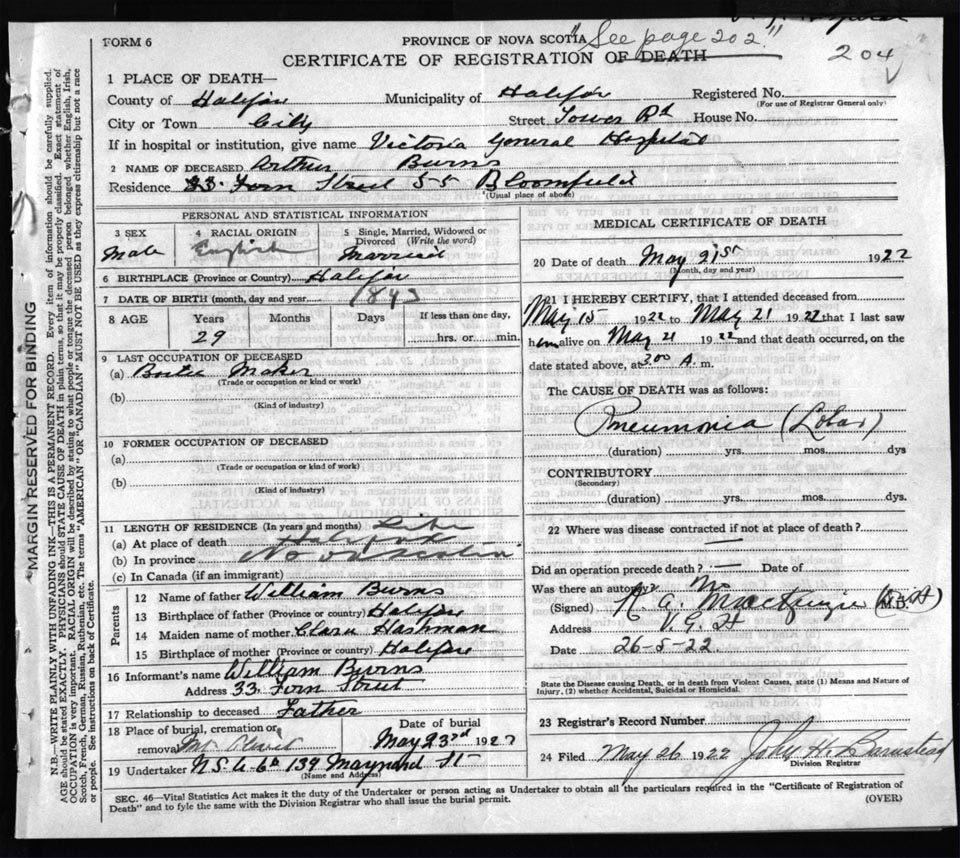 FORM 6
PROVINCE OF NOVA SCOTIA
"See page 202"
204
CERTIFICATE OF REGISTRATION OF DEATH
1 PLACE OF DEATH—
County of Halifax Municipality of Halifax Registered No.
(For use of Registrar General only)
City or Town City Street Tower Rd House No.
If in hospital or institution, give name Victoria General Hospital
2 NAME OF DECEASED Arthur Burns
Residence 33 Fern Street 55 Bloomfield
(Usual place of above)
PERSONAL AND STATISTICAL INFORMATION
3 SEX Male
4 RACIAL ORIGIN English
5 Single, Married, Widowed or Divorced (Write the word) Married
6 BIRTHPLACE (Province or Country) Halifax
7 DATE OF BIRTH (month, day and year) 1893
8 AGE Years Months Days If less than one day,
29 hrs. or min.
9 LAST OCCUPATION OF DECEASED
(a) Maker
(Trade or occupation or kind or work)
(b)
(Kind of industry)
10 FORMER OCCUPATION OF DECEASED
(a)
(Trade or occupation or kind of work)
(b)
(Kind of industry)
11 LENGTH OF RESIDENCE (In years and months) Life
(a) At place of death Halifax
(b) In province Nova Scotia
(c) In Canada (if an immigrant)
Parents
12 Name of father William Burns
13 Birthplace of father (Province or country) Halifax
14 Maiden name of mother Clara Hashman
15 Birthplace of mother (Province or country) Halifax
16 Informant's name William Burns
Address 33 Fern Street
17 Relationship to deceased Father
18 Place of burial, cremation or removal Mt Olivet
Date of burial May 23rd 1922
19 Undertaker N.S. U Co 139 Maynard St
(Name and Address)
MEDICAL CERTIFICATE OF DEATH
20 Date of death May 21st 1922
(Month, day and year)
21 I HEREBY CERTIFY, that I attended deceased from
May 15 1922 to May 21 1922 that I last saw
him alive on May 21 1922 and that death occurred, on the
date stated above, at 3.00 A. m.
The CAUSE OF DEATH was as follows:
Pneumonia (Lobar)
(duration) yrs. mos. dys
CONTRIBUTORY
(Secondary)
(duration) yrs. mos. dys.
22 Where was disease contracted if not at place of death?
—
Did an operation precede death? — Date of
Was there an autopsy? No
(Signed) A. G. MacKenzie M.B.
Address V.G.H
Date 26-5-22
State the Disease causing Death, or in death from Violent Causes, state (1) Means and Nature of
Injury, (2) whether Accidental, Suicidal or Homicidal.
23 Registrar's Record Number
24 Filed May 26 1922 John H. Barnstead
Division Registrar
SEC. 46—Vital Statistics Act makes it the duty of the Undertaker or person acting as Undertaker to obtain all the particulars required in the "Certificate of Registration of
Death" and to fyle the same with the Division Registrar who shall issue the burial permit.
(OVER)
MARGIN RESERVED FOR BINDING
N.B.—WRITE PLAINLY WITH UNFADING INK—THIS IS A PERMANENT RECORD. Every item of information should be carefully supplied.
AGE should be stated EXACTLY. PHYSICIANS should STATE CAUSE OF DEATH in plain terms, so that it may be properly classified. Exact statement of
OCCUPATION is very important. RACIAL ORIGIN will be described by stating to what people or tongue the deceased person belonged whether English, Irish,
Scotch, French, German, Russian, Ruthenian, etc. The terms "AMERICAN" or "CANADIAN" MUST NOT BE USED as they express citizenship but not a race
or people. See instructions on back of Certificate.